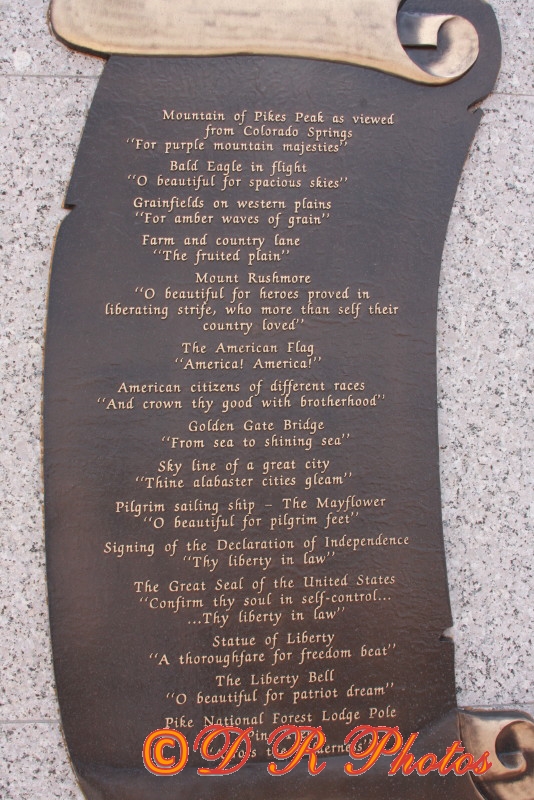 Mountain of Pikes Peak as viewed
from Colorado Springs
“For purple mountain majesties”
Bald Eagle in flight
“O beautiful for spacious skies”
Grainfields on western plains
“For amber waves of grain”
Farm and country lane
“The fruited plain”
Mount Rushmore
“O beautiful for heroes proved in
liberating strife, who more than self their
country loved”
The American Flag
“America! America!”
American citizens of different races
“And crown thy good with brotherhood”
Golden Gate Bridge
“From sea to shining sea”
Sky line of a great city
“Thine alabaster cities gleam”
Pilgrim sailing ship – The Mayflower
“O beautiful for pilgrim feet”
Signing of the Declaration of Independence
“Thy liberty in law”
The Great Seal of the United States
“Confirm thy soul in self-control...
...Thy liberty in law”
Statue of Liberty
“A thoroughfare for freedom beat”
The Liberty Bell
“O beautiful for patriot dream”
Pike National Forest Lodge Pole
© D R Photos